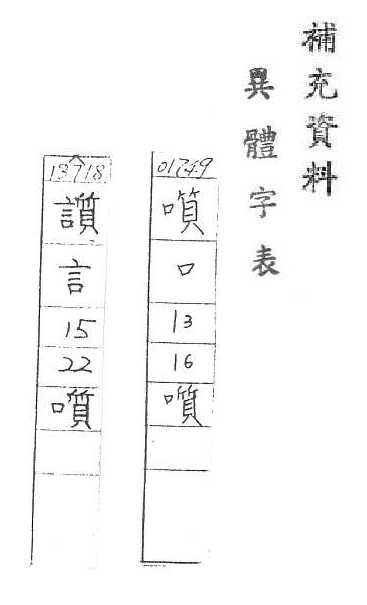 補充資料
異體字表
01749
口
13
16
13718
言
15
22